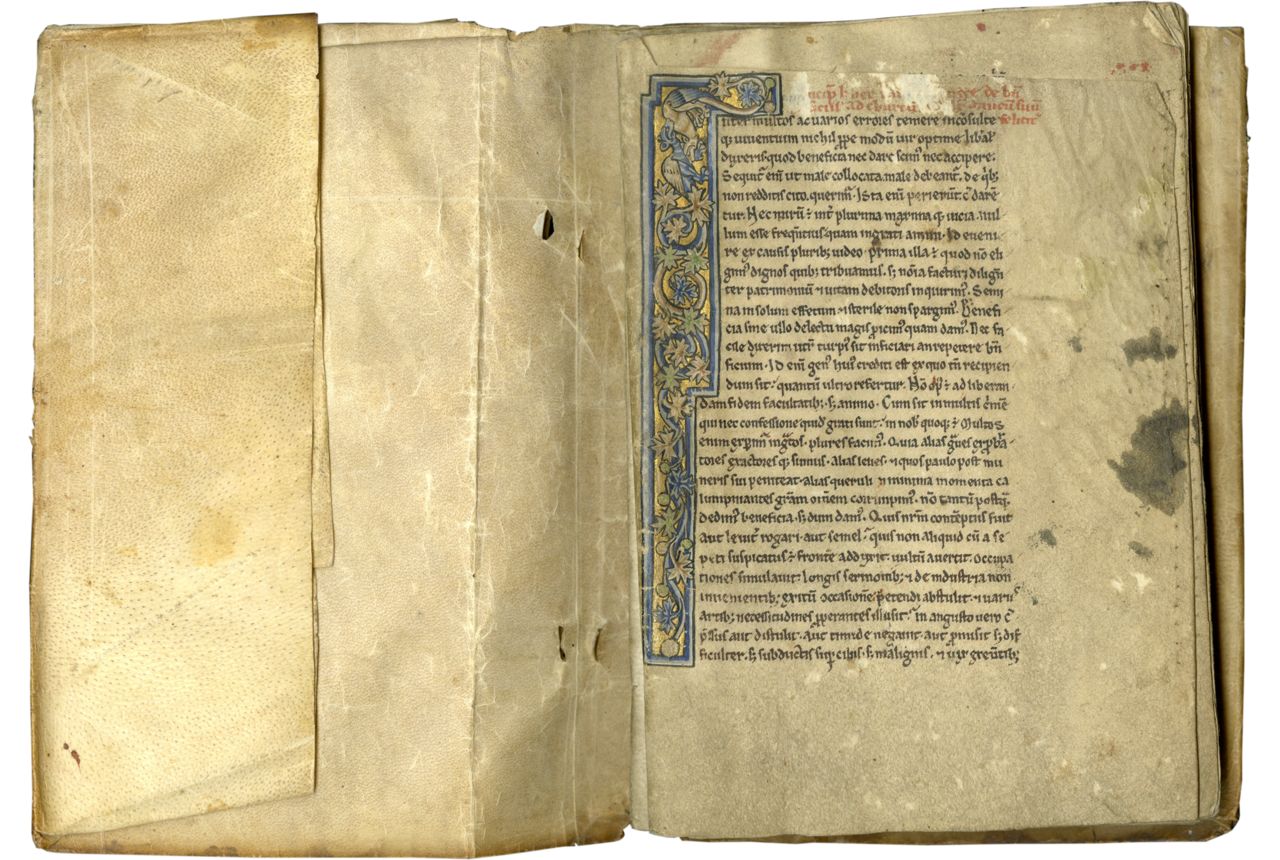 de bñ
ficiis ad eburtiū
feliciť
Inter multos ac uarios errores temere incōsulte
q; uiuentium nichil ꝓpe modū uir optime liƀal
dyxerisquod beneficia nec dare scim᷒ nec accipere.
Sequit᷒ eni᷒ ut male collocata male debeant᷒. de qͥb;
non redditis cito querim᷒. Ista eni᷒ perierūt c̄ darē
tur. Nec mirū ē int᷒ plurima maxima q; uicia. nul
lum esse freq̄ntius quam ingrati animi. Id eueni
re ex causis pluribꝫ uideo. prima illa ē quod nō eli
gim᷒ dignos quibꝫ tribuamus. sꝫ nōīa facturi diligēn
ter patrimoniū ⁊ uitam debitoris inquirim᷒. Semi
na in solum effetum ⁊ sterile non spargim᷒. Benefi
cia sine ullo delectu magis ꝓicim᷒ quam dam᷒. Nec fa
cile dyxerim utr̄ turpi᷒ sit inficiari an repetere bn̄
ficium. Id eni᷒ gen᷒ hui᷒ crediti est ex quo tn̄ recipien
dum sit. quantū ultro refertur. ad liberan
dam fidem facultatibꝫ. sꝫ animo. Cum sit in multis
qui nec confessione quidē grati sunt. in nob̄ quoqꝫ ē. Multos
enim exꝑim᷒ ing̃tos. plures facim᷒. Quia alias g̃ues exꝓbͣ
tores exactores qꝫ sumus. Alias leues. ⁊ quos paulo post mu
neris sui peniteat. alias queruli ⁊ minima momenta ca
lumpniantes gr̃am omēm corrumpim᷒. nō tantū postq̄
dedim᷒ beneficia. sꝫ dum dam᷒. Quis nr̄m cōtēptus fuit
Aut leuit᷒ rogari. aut semel. quis non aliquid cū a se
peti suspicatus ē frontē adduxit. uultū auertit. occupa
tiones simulauit. longis sermonibꝫ. ⁊ de industria non
inuenientibꝫ exitū occasionē petendi abstulit. ⁊ uariis
artibꝫ necessitudines ꝓperantes elusit. in angusto uero c̄
p̄hsus aut distulit. Aut timide negauit. aut ꝓmisit sꝫ dif
ficulter. sꝫ subductis supͥciliis. sꝫ malignis. ⁊ uix exeūtibꝫ